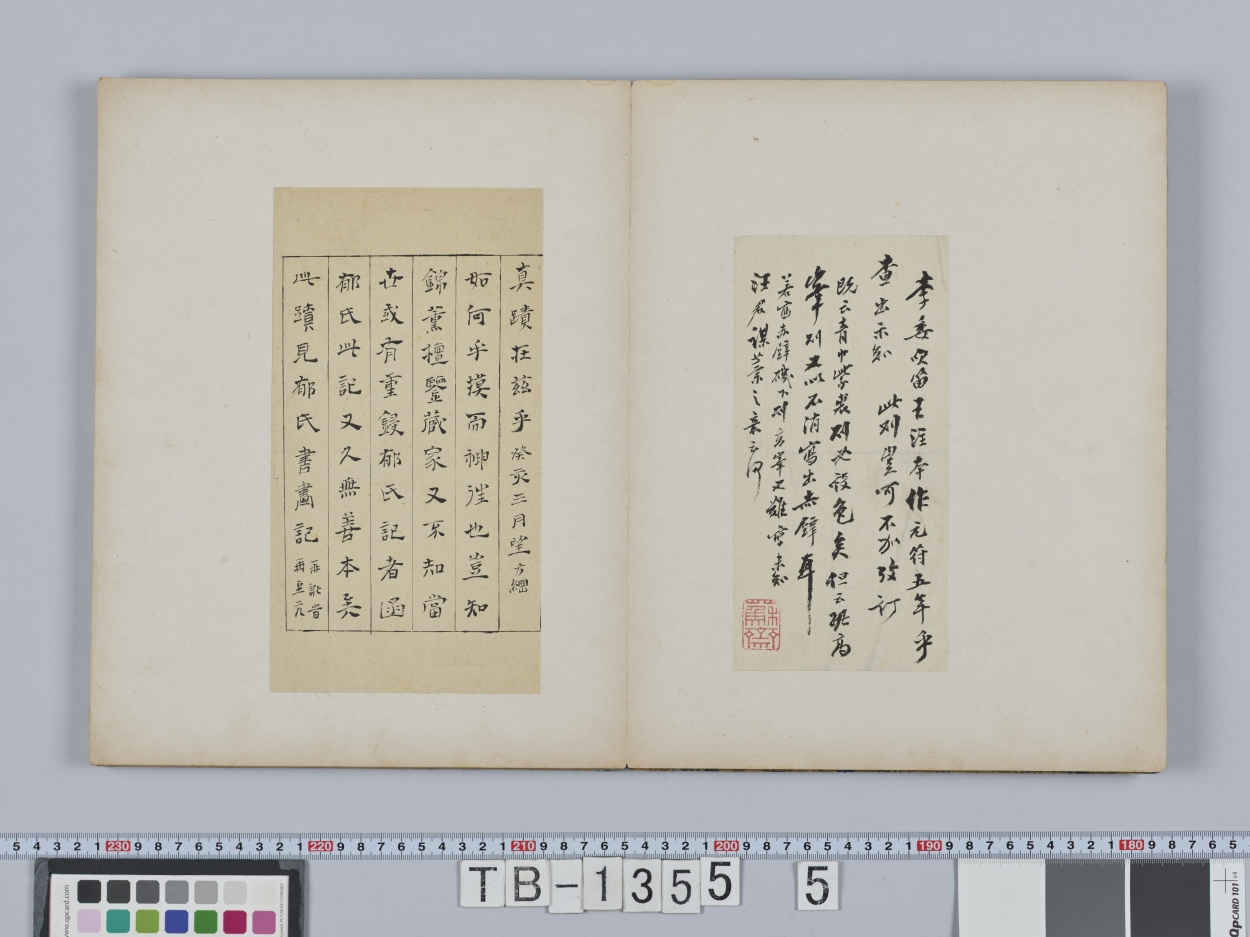 李委吹笛王注本作元符五年乎
查出示知
此則豈可不加攷訂
既云青巾紫裘則必設色矣但云踞高
峯則又似不消寫出赤壁耳
若面赤壁磯下則高峯又難寫未知
汪君謀葉之意云何
蘇齋
真蹟在茲乎癸亥三月望方綱
如何乎摸而神往也豈知
錦薰檀鑒藏家又不知當
世或有重鋟郁氏記者函
郁氏此記又久無善本矣
此蹟見郁氏書畫記
5 4 3 2 1 230 9 8 7 6 5 4 3 2 1 220 9 8 7 6 5 4 3 2 1 210 9 8 7 6 5 4 3 2 1 200 9 8 7 6 5 4 3 2 1 190 9 8 7 6 5 4 3 2 1 180 9 8 7 6 5
TB-1355 5
www.qpcard.com
QPCARD 101 v4